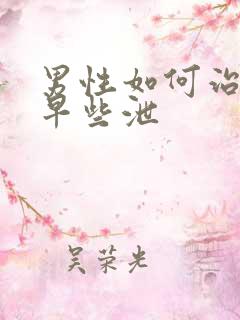 男性如何治
早些泄
吴荣光